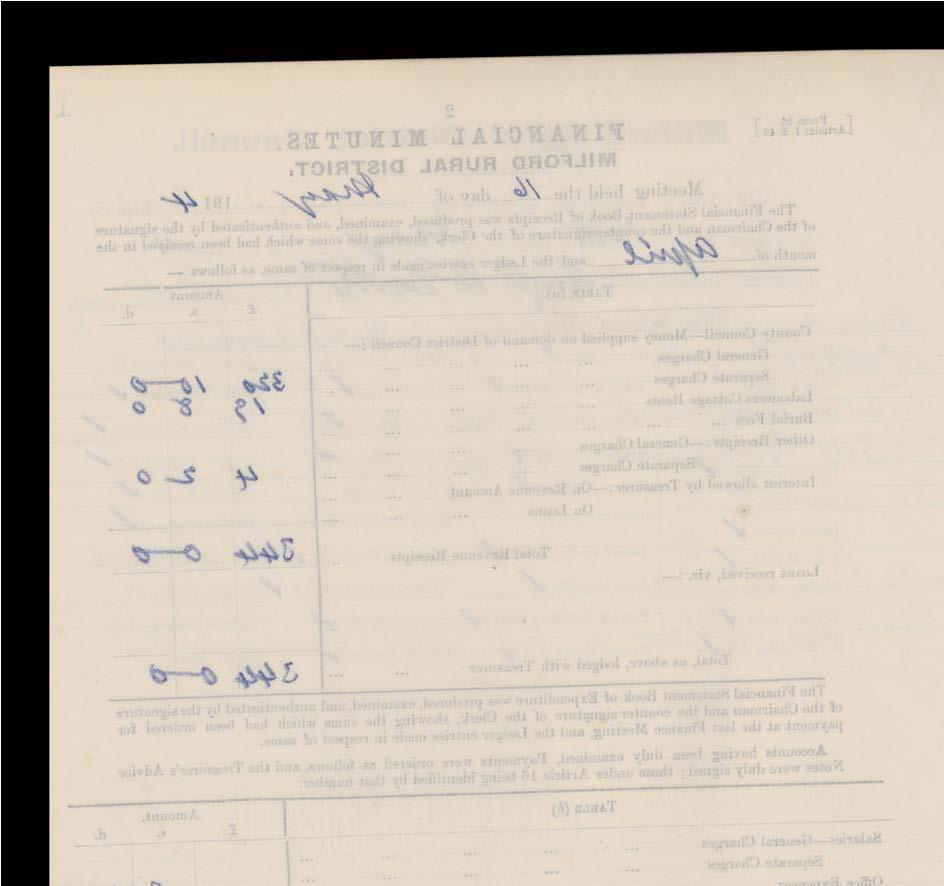 2
[Form 26 Articles 1 & 43]
FINANCIAL MINUTES.
MILFORD RURAL DISTRICT.
Meeting held the 16 day of May 1914
The Financial Statement Book of Receipts was produced, examined, and authenticated by the signature
of the Chairman and the counter-signature of the Clerk, showing the same which had been received in the
month of April and the Ledger entries made in respect of same, as follows —
TABLE (a). Amount
£ s. d.
County Council—Money supplied on demand of District Council :—
General Charges ... ... ... ...
Separate Charges ... ... ... ... 320 10—0
Labourers Cottage Rents ... ... ... ... 19 8 0
Burial Fees ... ... ... ... ...
Other Receipts :—General Charges ... ... ... ...
Separate Charges ... ... ... ... 4 2 0
Interest allowed by Treasurer :—On Revenue Account ... ...
On Loans ... ... ...
Total Revenue Receipts .. 344 0—0
Loans received, viz. :—
Total, as above, lodged with Treasurer ... ... 344 0—0
The Financial Statement Book of Expenditure was produced, examined, and authenticated by the signature
of the Chairman and the counter-signature of the Clerk, showing the sums which had been ordered for
payment at the last Finance Meeting, and the Ledger entries made in respect of same.
Accounts having been duly examined, Payments were ordered as follows, and the Treasurer's Advice
Notes were duly signed ; those under Article 16 being identified by that number.
TABLE (b) Amount.
£ s. d.
Salaries—General Charges ... ... ... ...
Separate Charges ... ... ... ...
Office Expenses